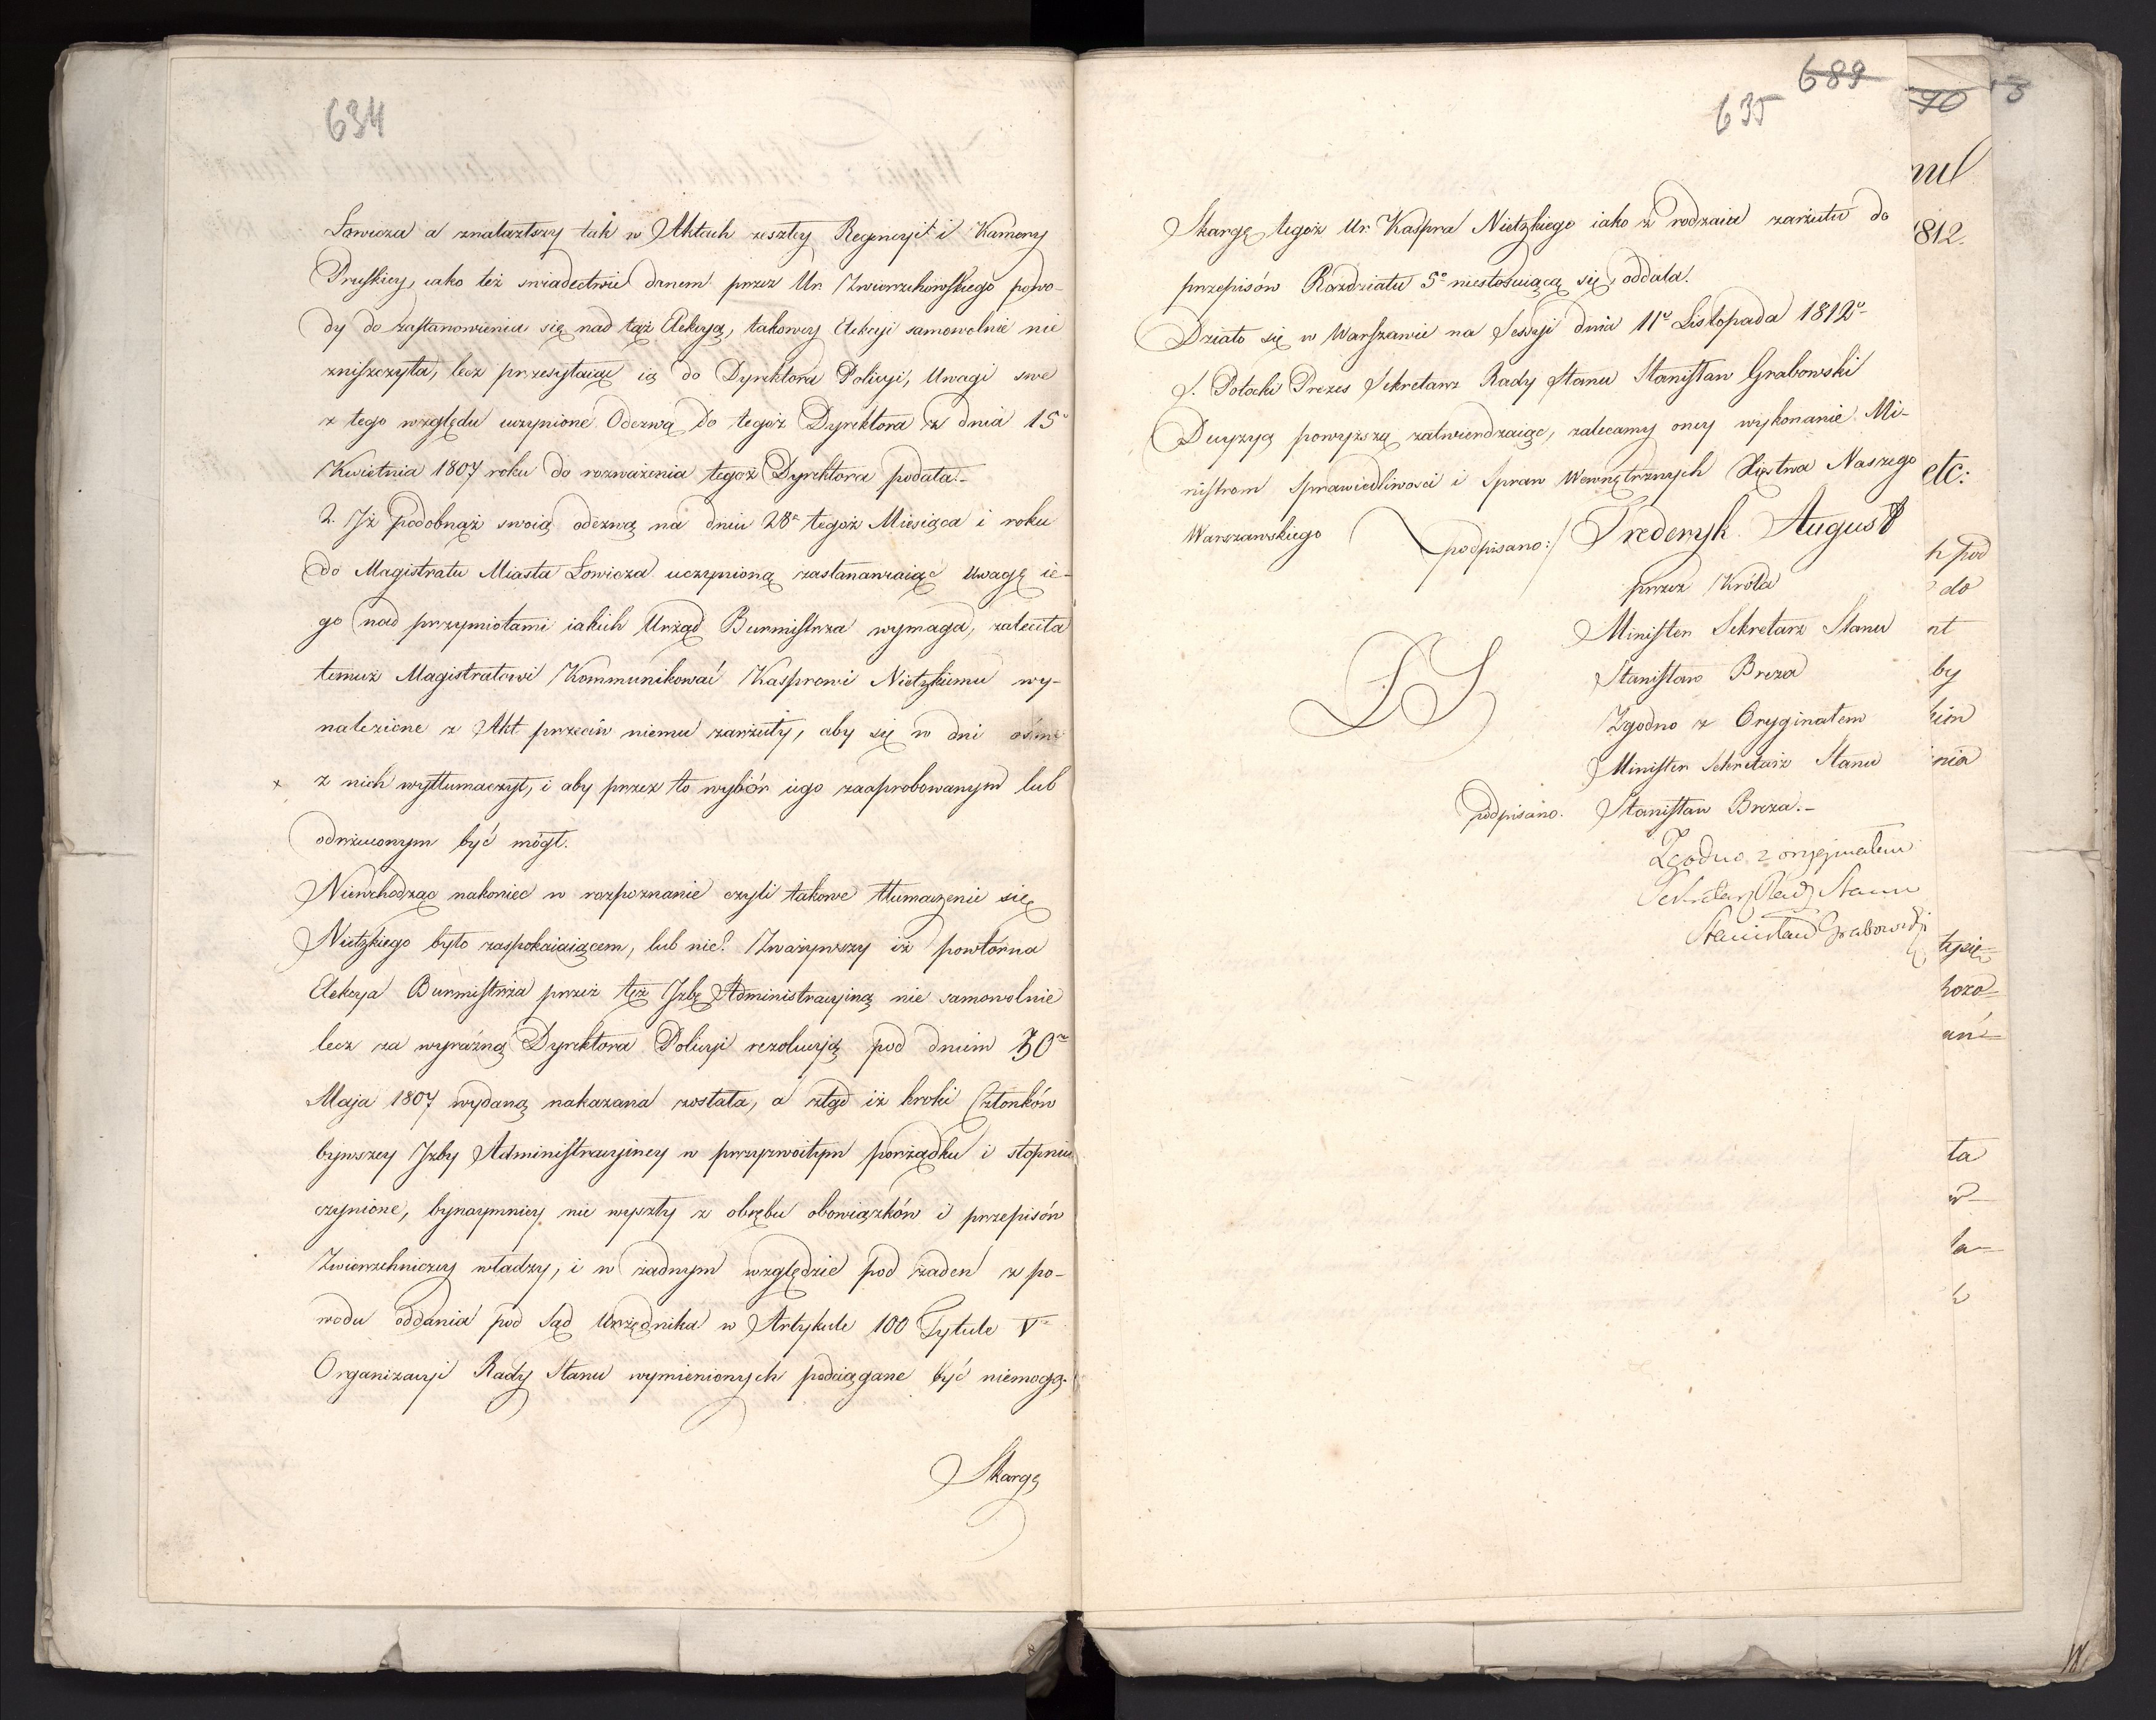 634
Łowicza a znalazłszy tak w Aktach zeszłey Regencyi i Kamery
Pruskiey, iako też świadectwie danem przez Ur. Zwierzchowskiego powo-
dy do zastanowienia się nad tąż Elekcyą, takowey Elekcyi samowolnie nie
zniszczyła, lecz przesyłaiąc ią do Dyrektora Policyi, Uwagi swe
z tego względu uczynione Odezwą do tegoż Dyrektora z dnia 15º
Kwietnia 1807 roku do rozważenia tegoż Dyrektora podała.-
2. Iż podobnąż swoią odezwą na dniu 28º tegoż Miesiąca i roku
do Magistratu Miasta Łowicza uczynioną zastanawiaiąc Uwagę ie-
go nad przymiotami iakich Urząd Burmistrza wymaga, zaleciła
temuż Magistratowi Kommunikować Kasprowi Nietzkiemu wy-
nalezione z Akt przeciw niemu zarzuty, aby się w dni ośmi
z nich wytłumaczył, i aby przez to wybór iego zaaprobowanym lub
odrzuconym być mógł.
Niewchodząc nakoniec w rozpoznanie czyli takowe tłumaczenie się
Nietzkiego było zaspokaiaiącem, lub nie? Zważywszy iż powtórna
Elekcya Burmistrza przez tęż Izbę Administracyiną nie samowolnie
lecz za wyraźną Dyrektora Policyi rezolucyą pod dniem 30º
Maja 1807 wydaną nakazana została, a ztąd iż kroki Członków
bywszey Izby Administracyiney w przyzwoitym porządku i stopniu
czynione, bynaymniey nie wyszły z obrębu obowiązków i przepisów
Zwierzchniczey władzy, i w żadnym względzie pod żaden z po-
wodu oddania pod Sąd Urzędnika w Artykule 100 Tytule V
Organizacyi Rady Stanu wymienionych podciągane być niemogą.
Skargę
689
635
Skargę tegoż Ur. Kaspra Nietzkiego iako z rodzaiu zarzutu do
przepisów Rozdziału 5º niestosuiącą się, oddala.
Działo się w Warszawie na Sessyi dnia 11º Listopada 1812º-
S. Potocki Prezes Sekretarz Rady Stanu Stanisław Grabowski
Decyzyą powyższą zatwierdzaiąc, zalecamy oney wykonanie Mi-
nistrom Sprawiedliwości i Spraw Wewnętrznych Xięstwa Naszego
Warszawskiego podpisano:/ Frederyk August
przez Króla
Minister Sekretarz Stanu
Stanisław Breza
LS
Zgodno z Oryginałem
Minister Sekretarz Stanu
podpisano. Stanisław Breza.-
Zgodno z oryginałem
Sekretarz Rady Stanu
Stanisław Grabowski
70
1812.
etc:
do
nt
by
nia
ta